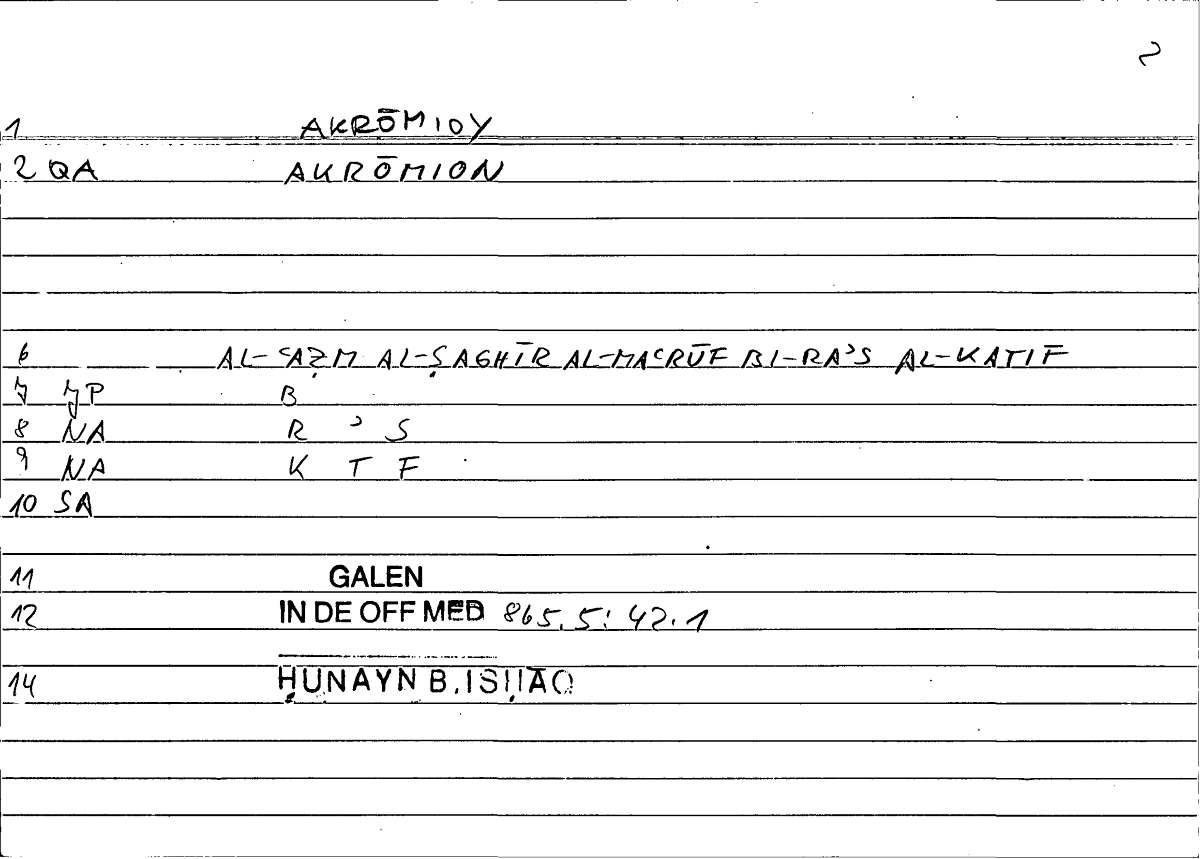 2
1 AKRŌMIOY
2 QA AKRŌMION
6 AL-ʿAẒM AL-ṢAGHĪR AL-MAʿRŪF BI-RAʾS AL-KATIF
7 JP B
8 NA R ʾ S
9 NA K T F
10 SA
11 GALEN
12 IN DE OFF MED 865.5: 42.1
14 ḤUNAYN B. ISḤĀQ